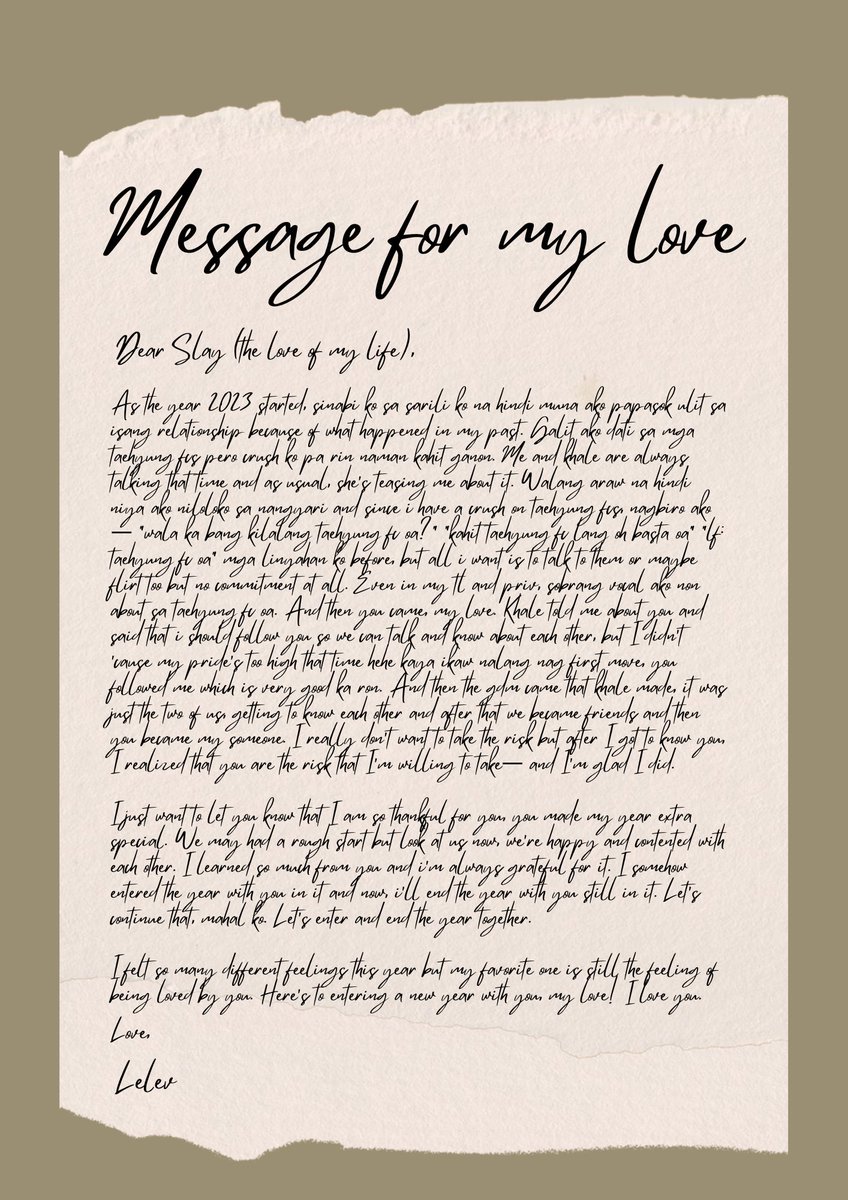 Message for my love
Dear Slay (the love of my life),
As the year 2023 started, sinabi ko sa sarili ko na hindi muna ako papasok ulit sa
isang relationship because of what happened in my past. Galit ako dati sa mga
taehyung fcs pero crush ko pa rin naman kahit ganon. Me and khale are always
talking that time and as usual, she's teasing me about it. Walang araw na hindi
niya ako niloloko sa nangyari and since i have a crush on taehyung fcs, nagbiro ako
— "wala ka bang kilalang taehyung fc oa?" "kahit taehyung fc lang oh basta oa" "lf:
taehyung fc oa" mga linyahan ko before, but all i want is to talk to them or maybe
flirt too but no commitment at all. Even in my tl and priv, sobrang vocal ako non
about sa taehyung fc oa. And then you came, my love. Khale told me about you and
said that i should follow you so we can talk and know about each other, but I didn't
'cause my pride's too high that time hehe kaya ikaw nalang nag first move, you
followed me which is very good ka ron. And then the gdm came that khale made, it was
just the two of us, getting to know each other and after that we became friends and then
you became my someone. I really don't want to take the risk but after I got to know you,
I realized that you are the risk that I'm willing to take— and I'm glad I did.
I just want to let you know that I am so thankful for you, you made my year extra
special. We may had a rough start but look at us now, we're happy and contented with
each other. I learned so much from you and i'm always grateful for it. I somehow
entered the year with you in it and now, i'll end the year with you still in it. Let's
continue that, mahal ko. Let's enter and end the year together.
I felt so many different feelings this year but my favorite one is still the feeling of
being loved by you. Here's to entering a new year with you, my love! I love you.
Love,
Lelev